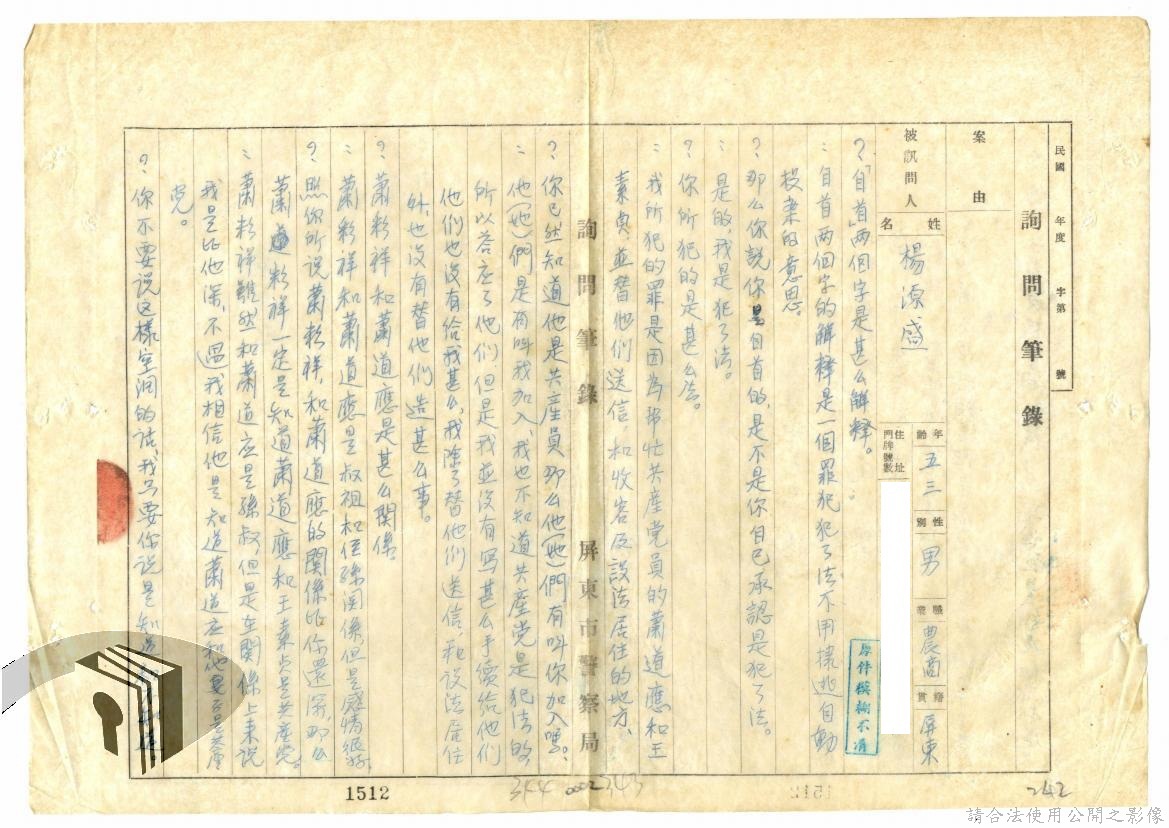 民國　年度　字第　號
詢問筆錄
案由
被訊問人
姓名 楊源盛
年齡 五三
性別 男
職業 農商
籍貫 屏東
住址門牌號數
原件模糊不清
？「自首」两個字是甚么解釋。
：自首两個字的解釋是一個罪犯犯了法不用逃自動
投案的意思。
？那么你説你是自首的，是不是你自己承認是犯了法。
：是的，我是犯了法。
？你所犯的是甚么法。
：我所犯的罪是因為帮忙共産党員的蕭道應和王
素貞並替他們送信，和收容及設法居住的地方、
？你已然知道他是共産員那么他(她)們有叫你加入嗎。
：他(她)們是有叫我加入，我也不知道共産党是犯法的
所以答应了他们，但是我並没有写甚么手續给他们
他們也没有给我甚么，我除了替他们送信，和設法居住
外，也没有替他们造甚么事。
？蕭彩祥和蕭道應是甚么関係。
：蕭彩祥和蕭道應是叔祖和侄孫関係但是感情很好
？照你所说蕭彩祥，和蕭道應的関係比你還深，那么
蕭彩祥一定是知道蕭道應和王素贞是共産党。
：蕭彩祥雖然和蕭道应是孫叔，但是在関係上来説
我是比他深，不過我相信他是知道蕭道应和他妻子是共産
党。
？你不要说这樣空洞的话，我只要你说是知道
詢問筆錄
屏東市警察局
1512
344
0002
343
242
請合法使用公開之影像